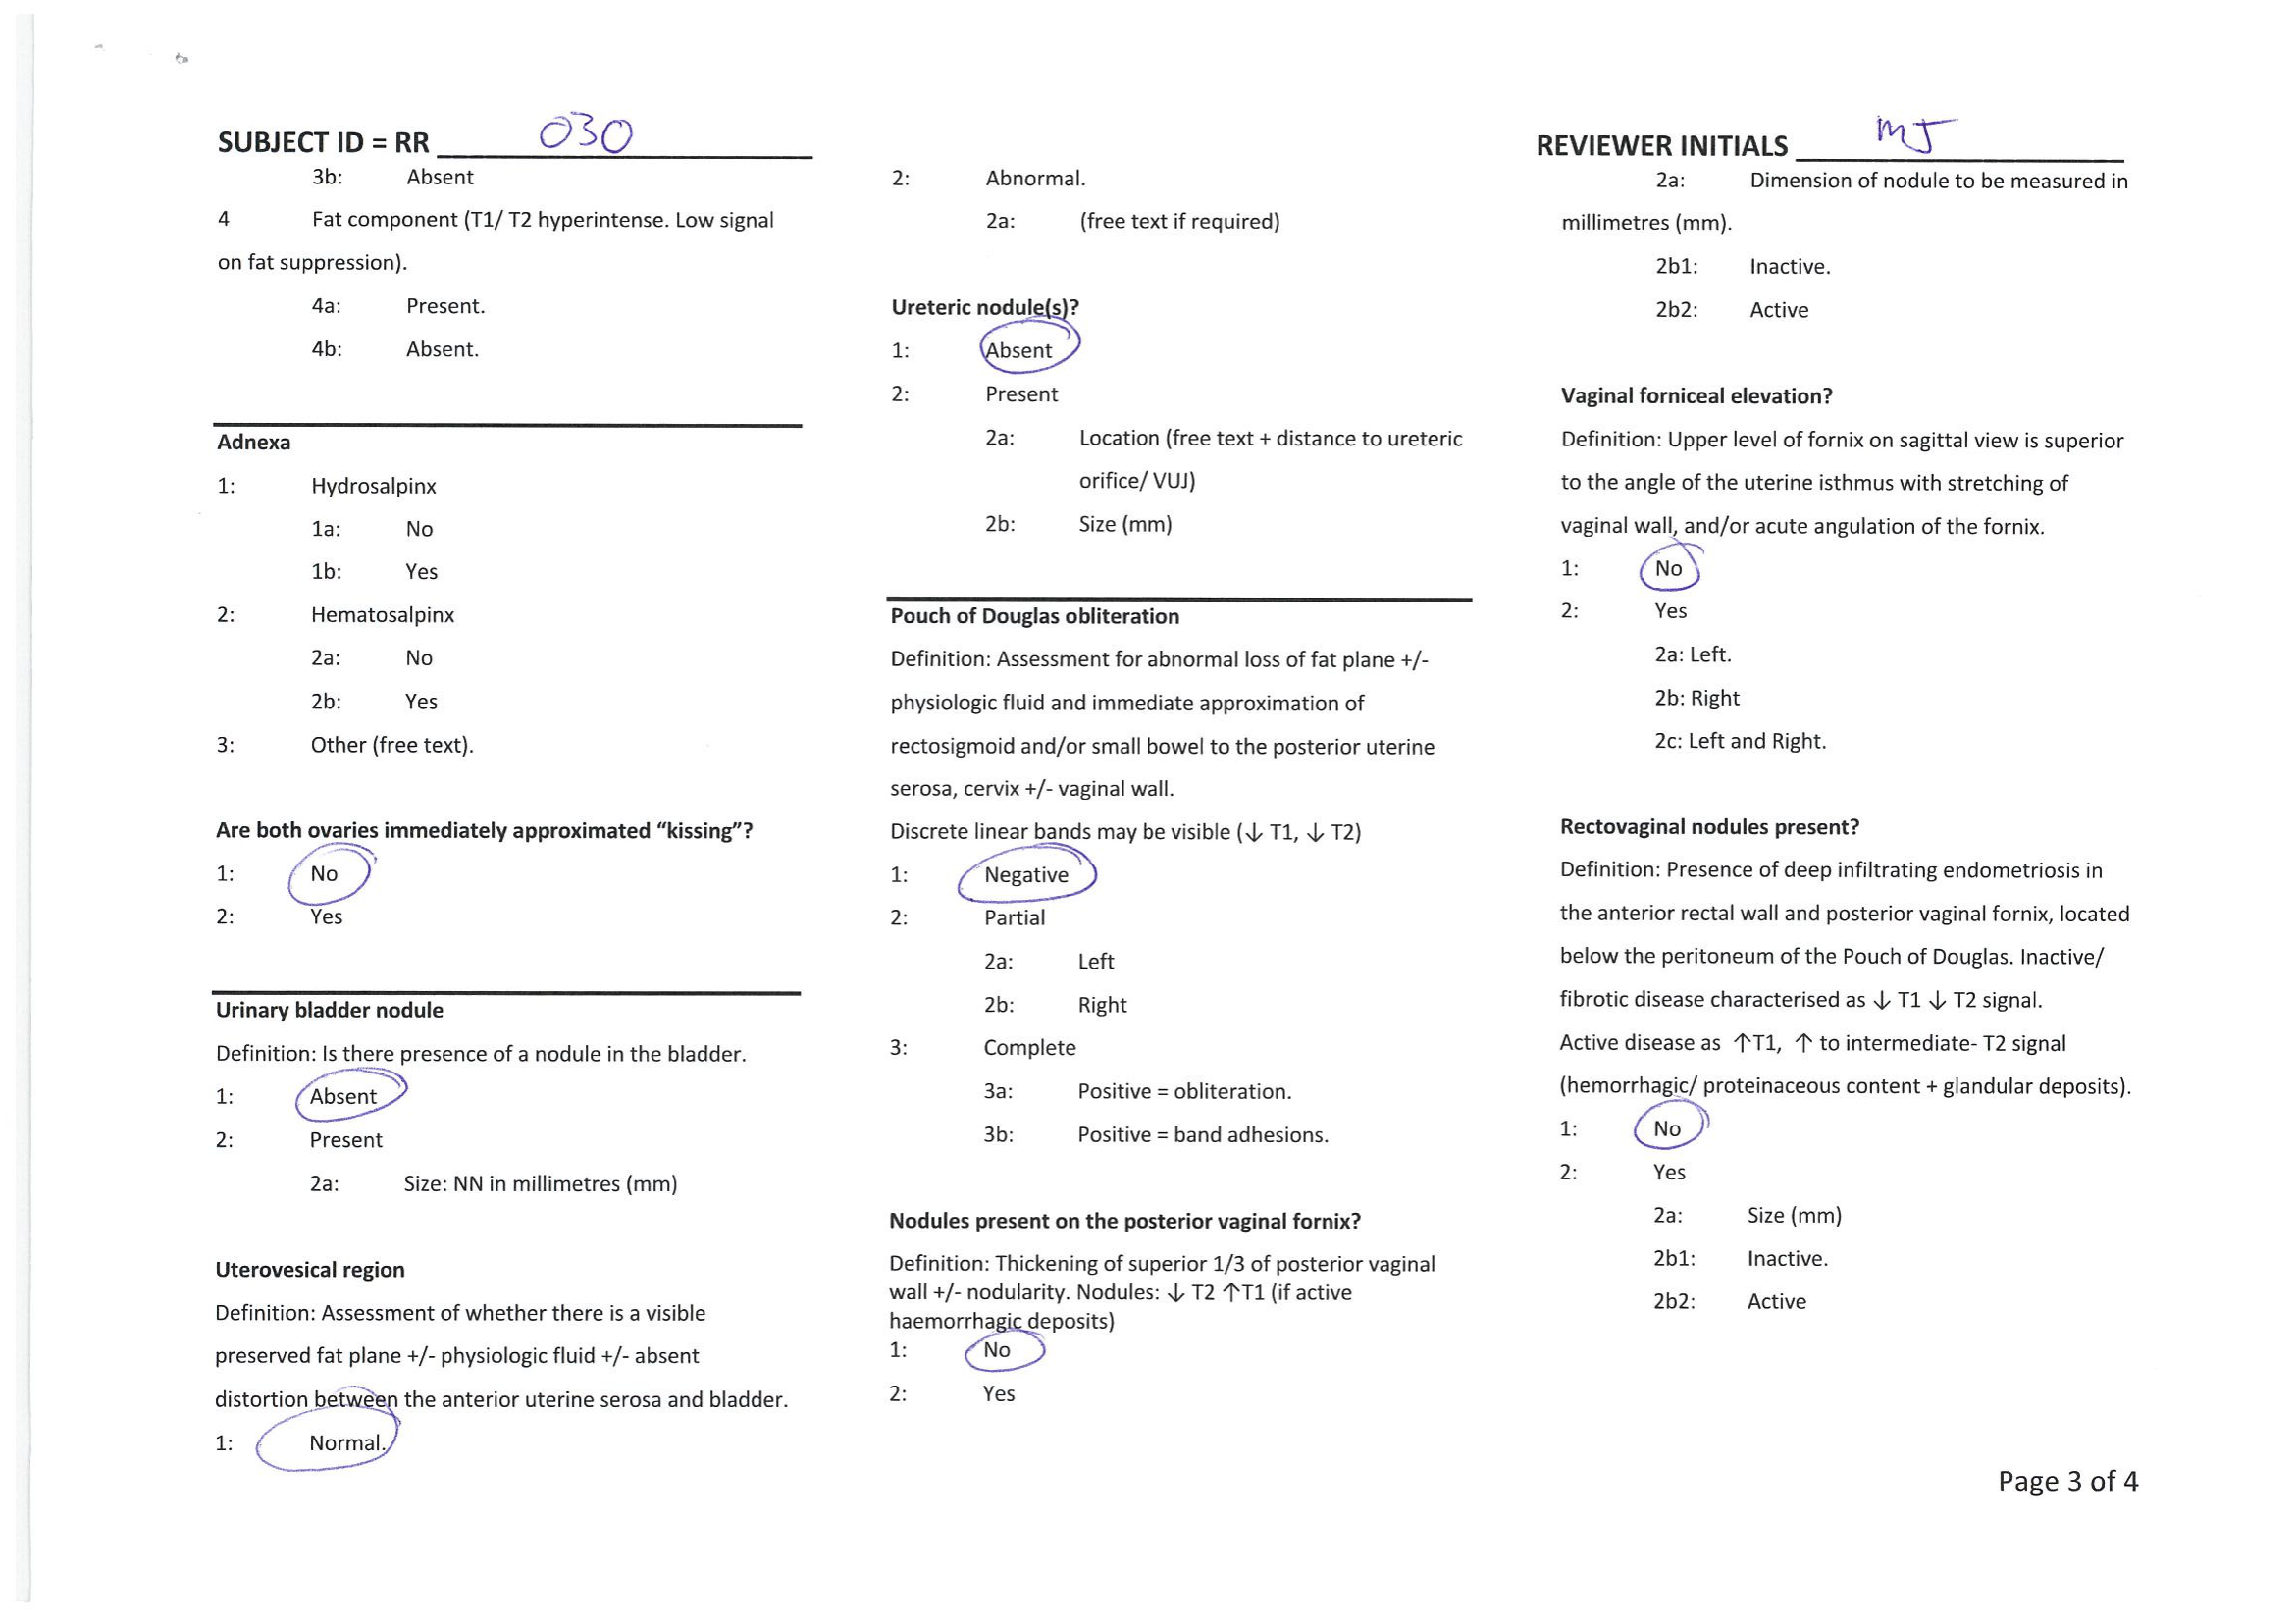 SUBJECT ID = RR 030
REVIEWER INITIALS MJ
3b: Absent
4 Fat component (T1/ T2 hyperintense. Low signal
on fat suppression).
4a: Present.
4b: Absent.
Adnexa
1: Hydrosalpinx
1a: No
1b: Yes
2: Hematosalpinx
2a: No
2b: Yes
3: Other (free text).
Are both ovaries immediately approximated “kissing”?
1: No
2: Yes
Urinary bladder nodule
Definition: Is there presence of a nodule in the bladder.
1: Absent
2: Present
2a: Size: NN in millimetres (mm)
Uterovesical region
Definition: Assessment of whether there is a visible
preserved fat plane +/- physiologic fluid +/- absent
distortion between the anterior uterine serosa and bladder.
1: Normal.
2: Abnormal.
2a: (free text if required)
Ureteric nodule(s)?
1: Absent
2: Present
2a: Location (free text + distance to ureteric
orifice/ VUJ)
2b: Size (mm)
Pouch of Douglas obliteration
Definition: Assessment for abnormal loss of fat plane +/-
physiologic fluid and immediate approximation of
rectosigmoid and/or small bowel to the posterior uterine
serosa, cervix +/- vaginal wall.
Discrete linear bands may be visible (↓ T1, ↓ T2)
1: Negative
2: Partial
2a: Left
2b: Right
3: Complete
3a: Positive = obliteration.
3b: Positive = band adhesions.
Nodules present on the posterior vaginal fornix?
Definition: Thickening of superior 1/3 of posterior vaginal
wall +/- nodularity. Nodules: ↓ T2 ↑T1 (if active
haemorrhagic deposits)
1: No
2: Yes
2a: Dimension of nodule to be measured in
millimetres (mm).
2b1: Inactive.
2b2: Active
Vaginal forniceal elevation?
Definition: Upper level of fornix on sagittal view is superior
to the angle of the uterine isthmus with stretching of
vaginal wall, and/or acute angulation of the fornix.
1: No
2: Yes
2a: Left.
2b: Right
2c: Left and Right.
Rectovaginal nodules present?
Definition: Presence of deep infiltrating endometriosis in
the anterior rectal wall and posterior vaginal fornix, located
below the peritoneum of the Pouch of Douglas. Inactive/
fibrotic disease characterised as ↓ T1 ↓ T2 signal.
Active disease as ↑T1, ↑ to intermediate- T2 signal
(hemorrhagic/ proteinaceous content + glandular deposits).
1: No
2: Yes
2a: Size (mm)
2b1: Inactive.
2b2: Active
Page 3 of 4